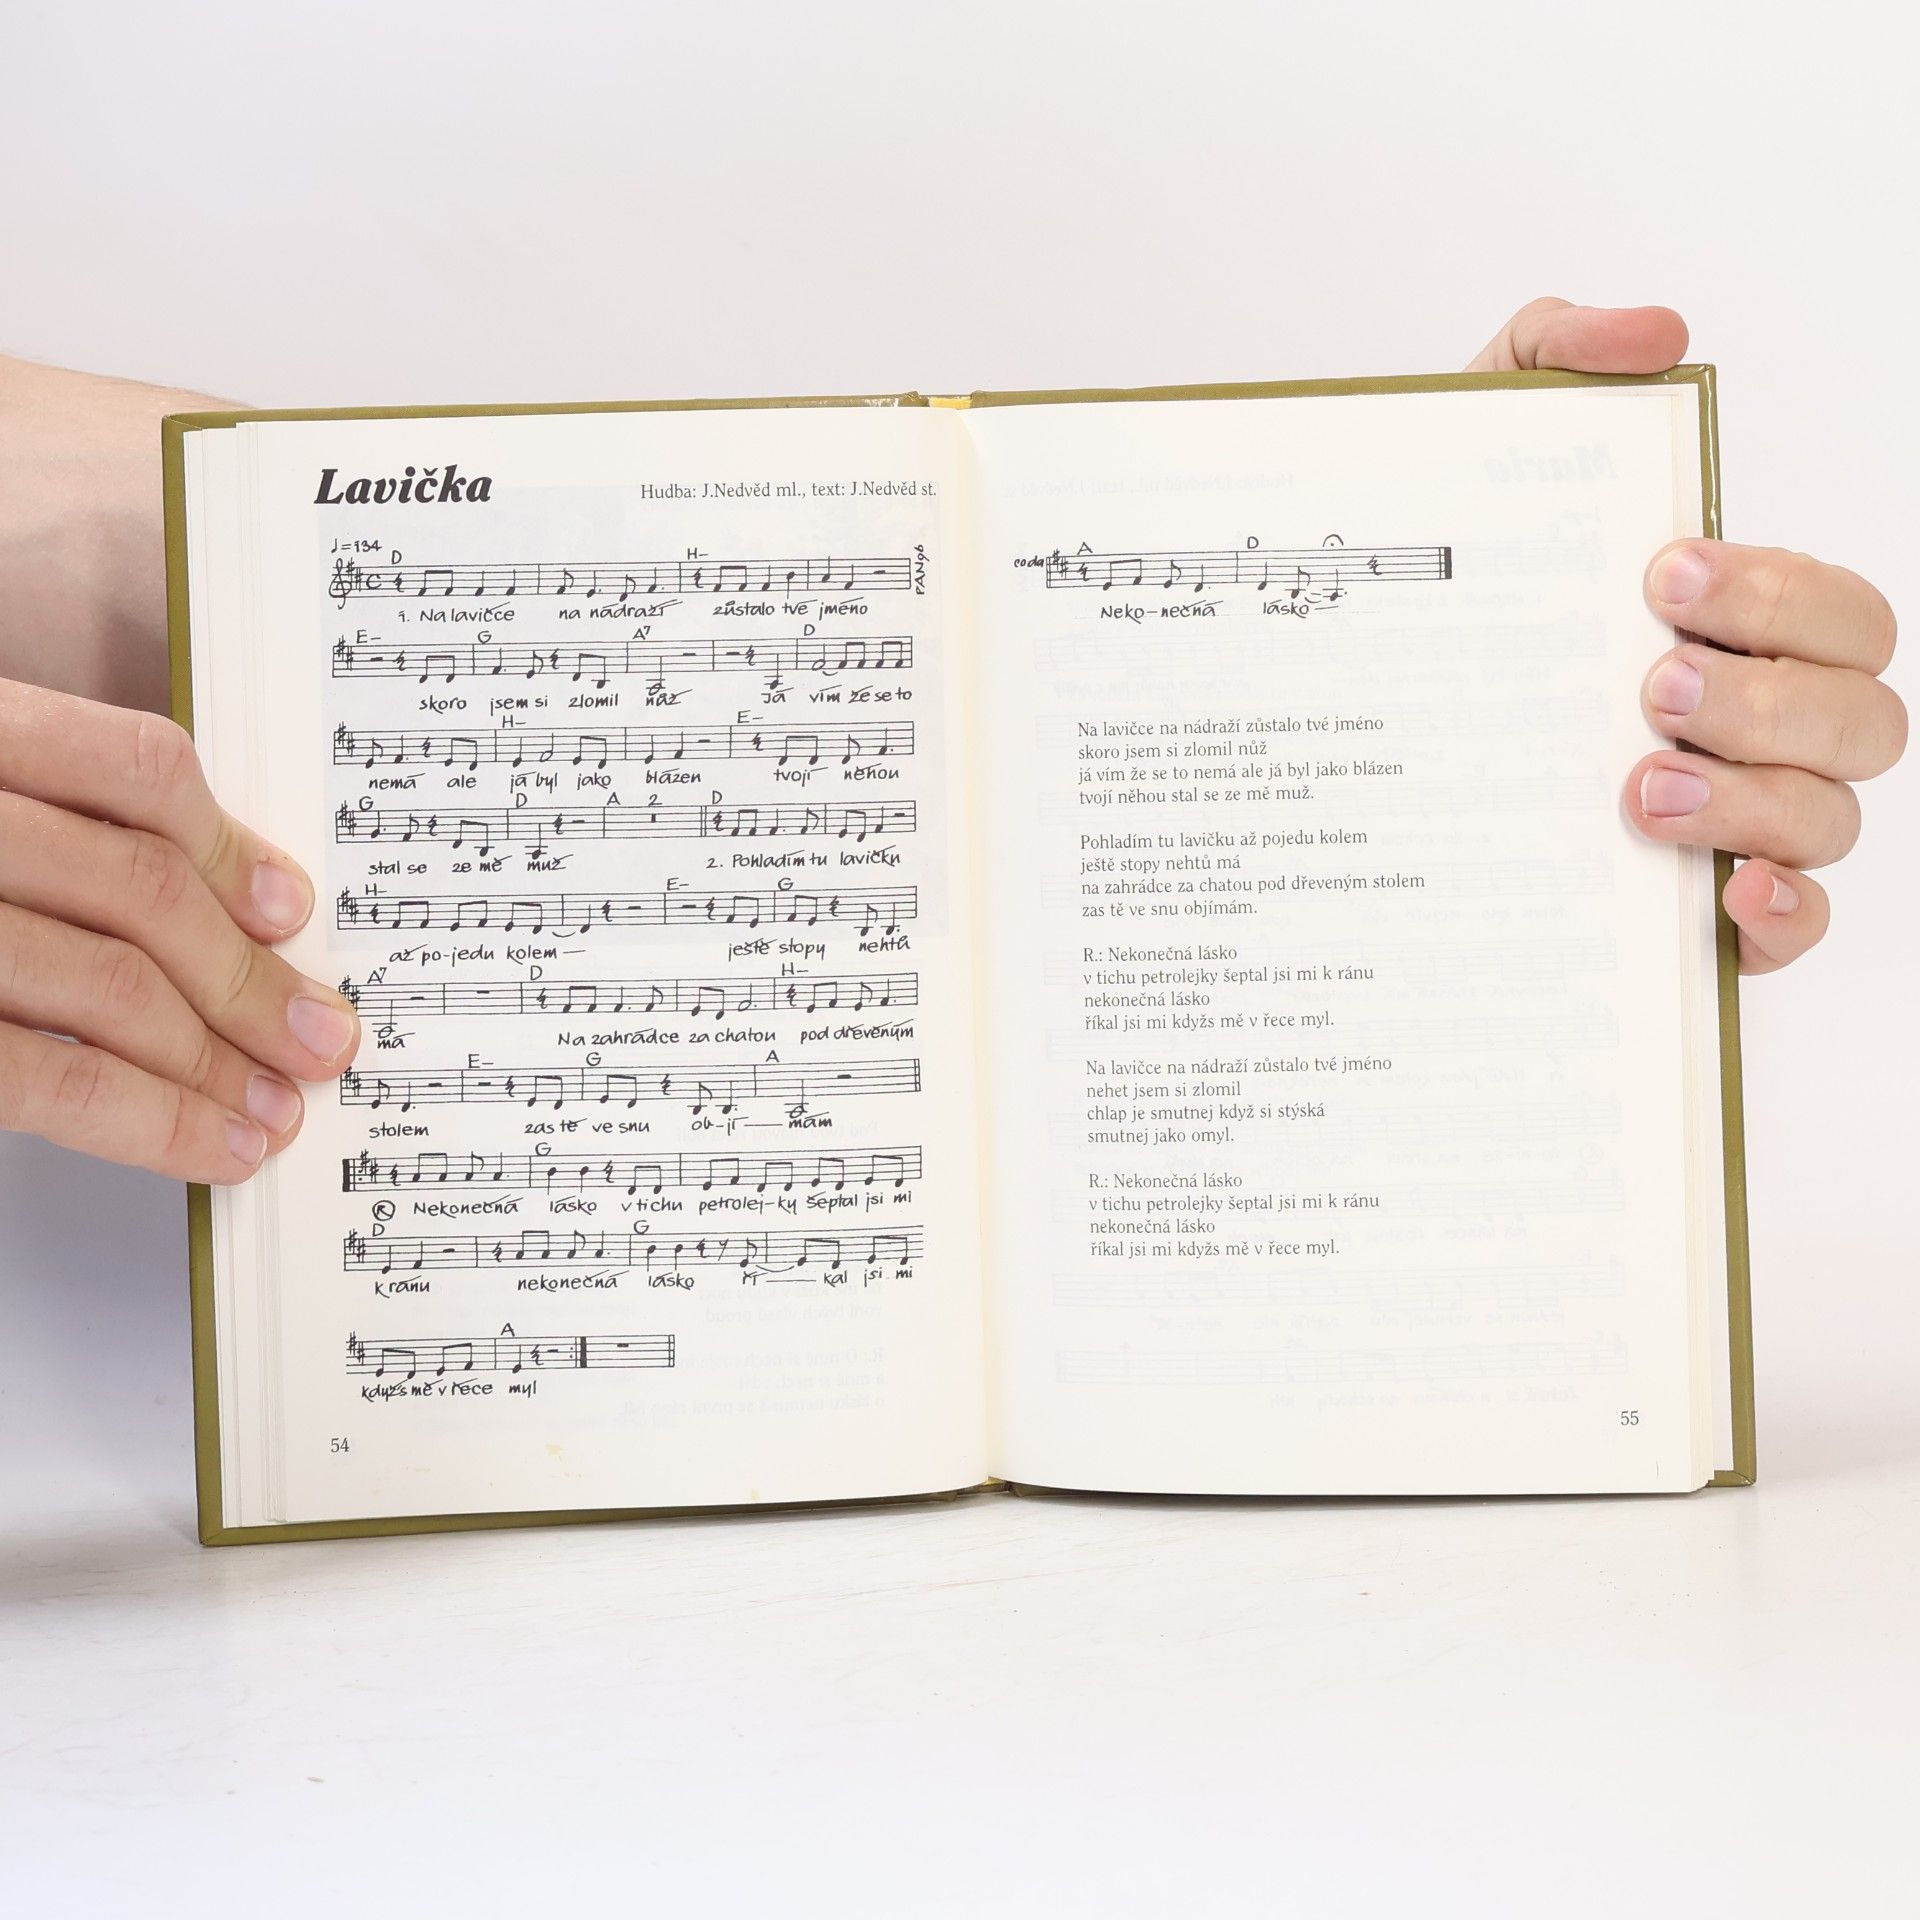 Lavička
Hudba: J.Nedvěd ml., text: J.Nedvěd st.
♩=134
D H-
PAN96
1. Na lavičce na nádraží zůstalo tvé jméno
E- G A7 D
skoro jsem si zlomil nůž Já vím že se to
H- E-
nemá ale já byl jako blázen tvojí něhou
G D A 2 D
stal se ze mě muž 2. Pohladím tu lavičku
H- E- G
až po-jedu kolem — ještě stopy nehtů
A7 D H-
má Na zahrádce za chatou pod dřevěným
E- G A
stolem zas tě ve snu ob-jí — mám
G
R Nekonečná lásko v tichu petrolej-ky šeptal jsi mi
D G
k ránu nekonečná lásko ří — kal jsi mi
A
kdyžs mě v řece myl
54
coda A D
Neko-nečná lásko —
Na lavičce na nádraží zůstalo tvé jméno
skoro jsem si zlomil nůž
já vím že se to nemá ale já byl jako blázen
tvojí něhou stal se ze mě muž.
Pohladím tu lavičku až pojedu kolem
ještě stopy nehtů má
na zahrádce za chatou pod dřeveným stolem
zas tě ve snu objímám.
R.: Nekonečná lásko
v tichu petrolejky šeptal jsi mi k ránu
nekonečná lásko
říkal jsi mi kdyžs mě v řece myl.
Na lavičce na nádraží zůstalo tvé jméno
nehet jsem si zlomil
chlap je smutnej když si stýská
smutnej jako omyl.
R.: Nekonečná lásko
v tichu petrolejky šeptal jsi mi k ránu
nekonečná lásko
říkal jsi mi kdyžs mě v řece myl.
55